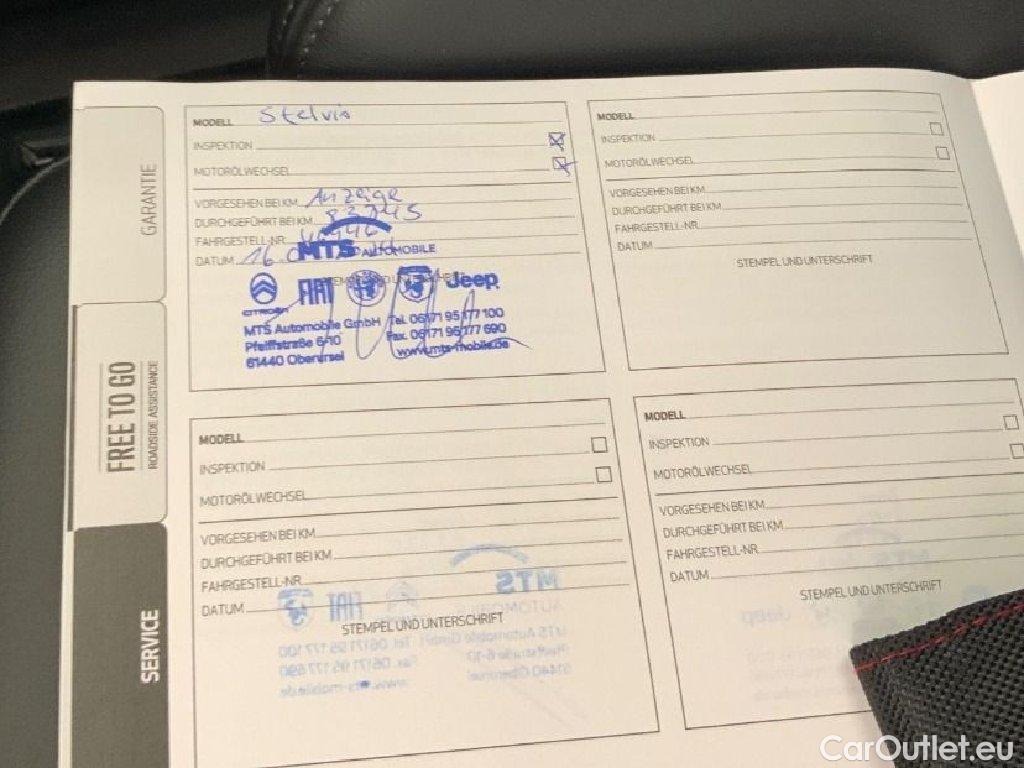 MODELL Stelvio
INSPEKTION
MOTORÖLWECHSEL
VORGESEHEN BEI KM Anzeige
DURCHGEFÜHRT BEI KM
FAHRGESTELL-NR.
DATUM 16.
MTS AUTOMOBILE
CITROËN FIAT Jeep
MTS Automobile GmbH Tel. 06171 95 177 100
Pfeiffstraße 6-10 Fax. 06171 95 177 690
61440 Oberursel www.mts-mobile.de
MODELL
INSPEKTION
MOTORÖLWECHSEL
VORGESEHEN BEI KM
DURCHGEFÜHRT BEI KM
FAHRGESTELL-NR.
DATUM
STEMPEL UND UNTERSCHRIFT
MODELL
INSPEKTION
MOTORÖLWECHSEL
VORGESEHEN BEI KM
DURCHGEFÜHRT BEI KM
FAHRGESTELL-NR.
DATUM
STEMPEL UND UNTERSCHRIFT
MODELL
INSPEKTION
MOTORÖLWECHSEL
VORGESEHEN BEI KM
DURCHGEFÜHRT BEI KM
FAHRGESTELL-NR.
DATUM
STEMPEL UND UNTERSCHRIFT
GARANTIE
FREE TO GO
ROADSIDE ASSISTANCE
SERVICE
CarOutlet.eu